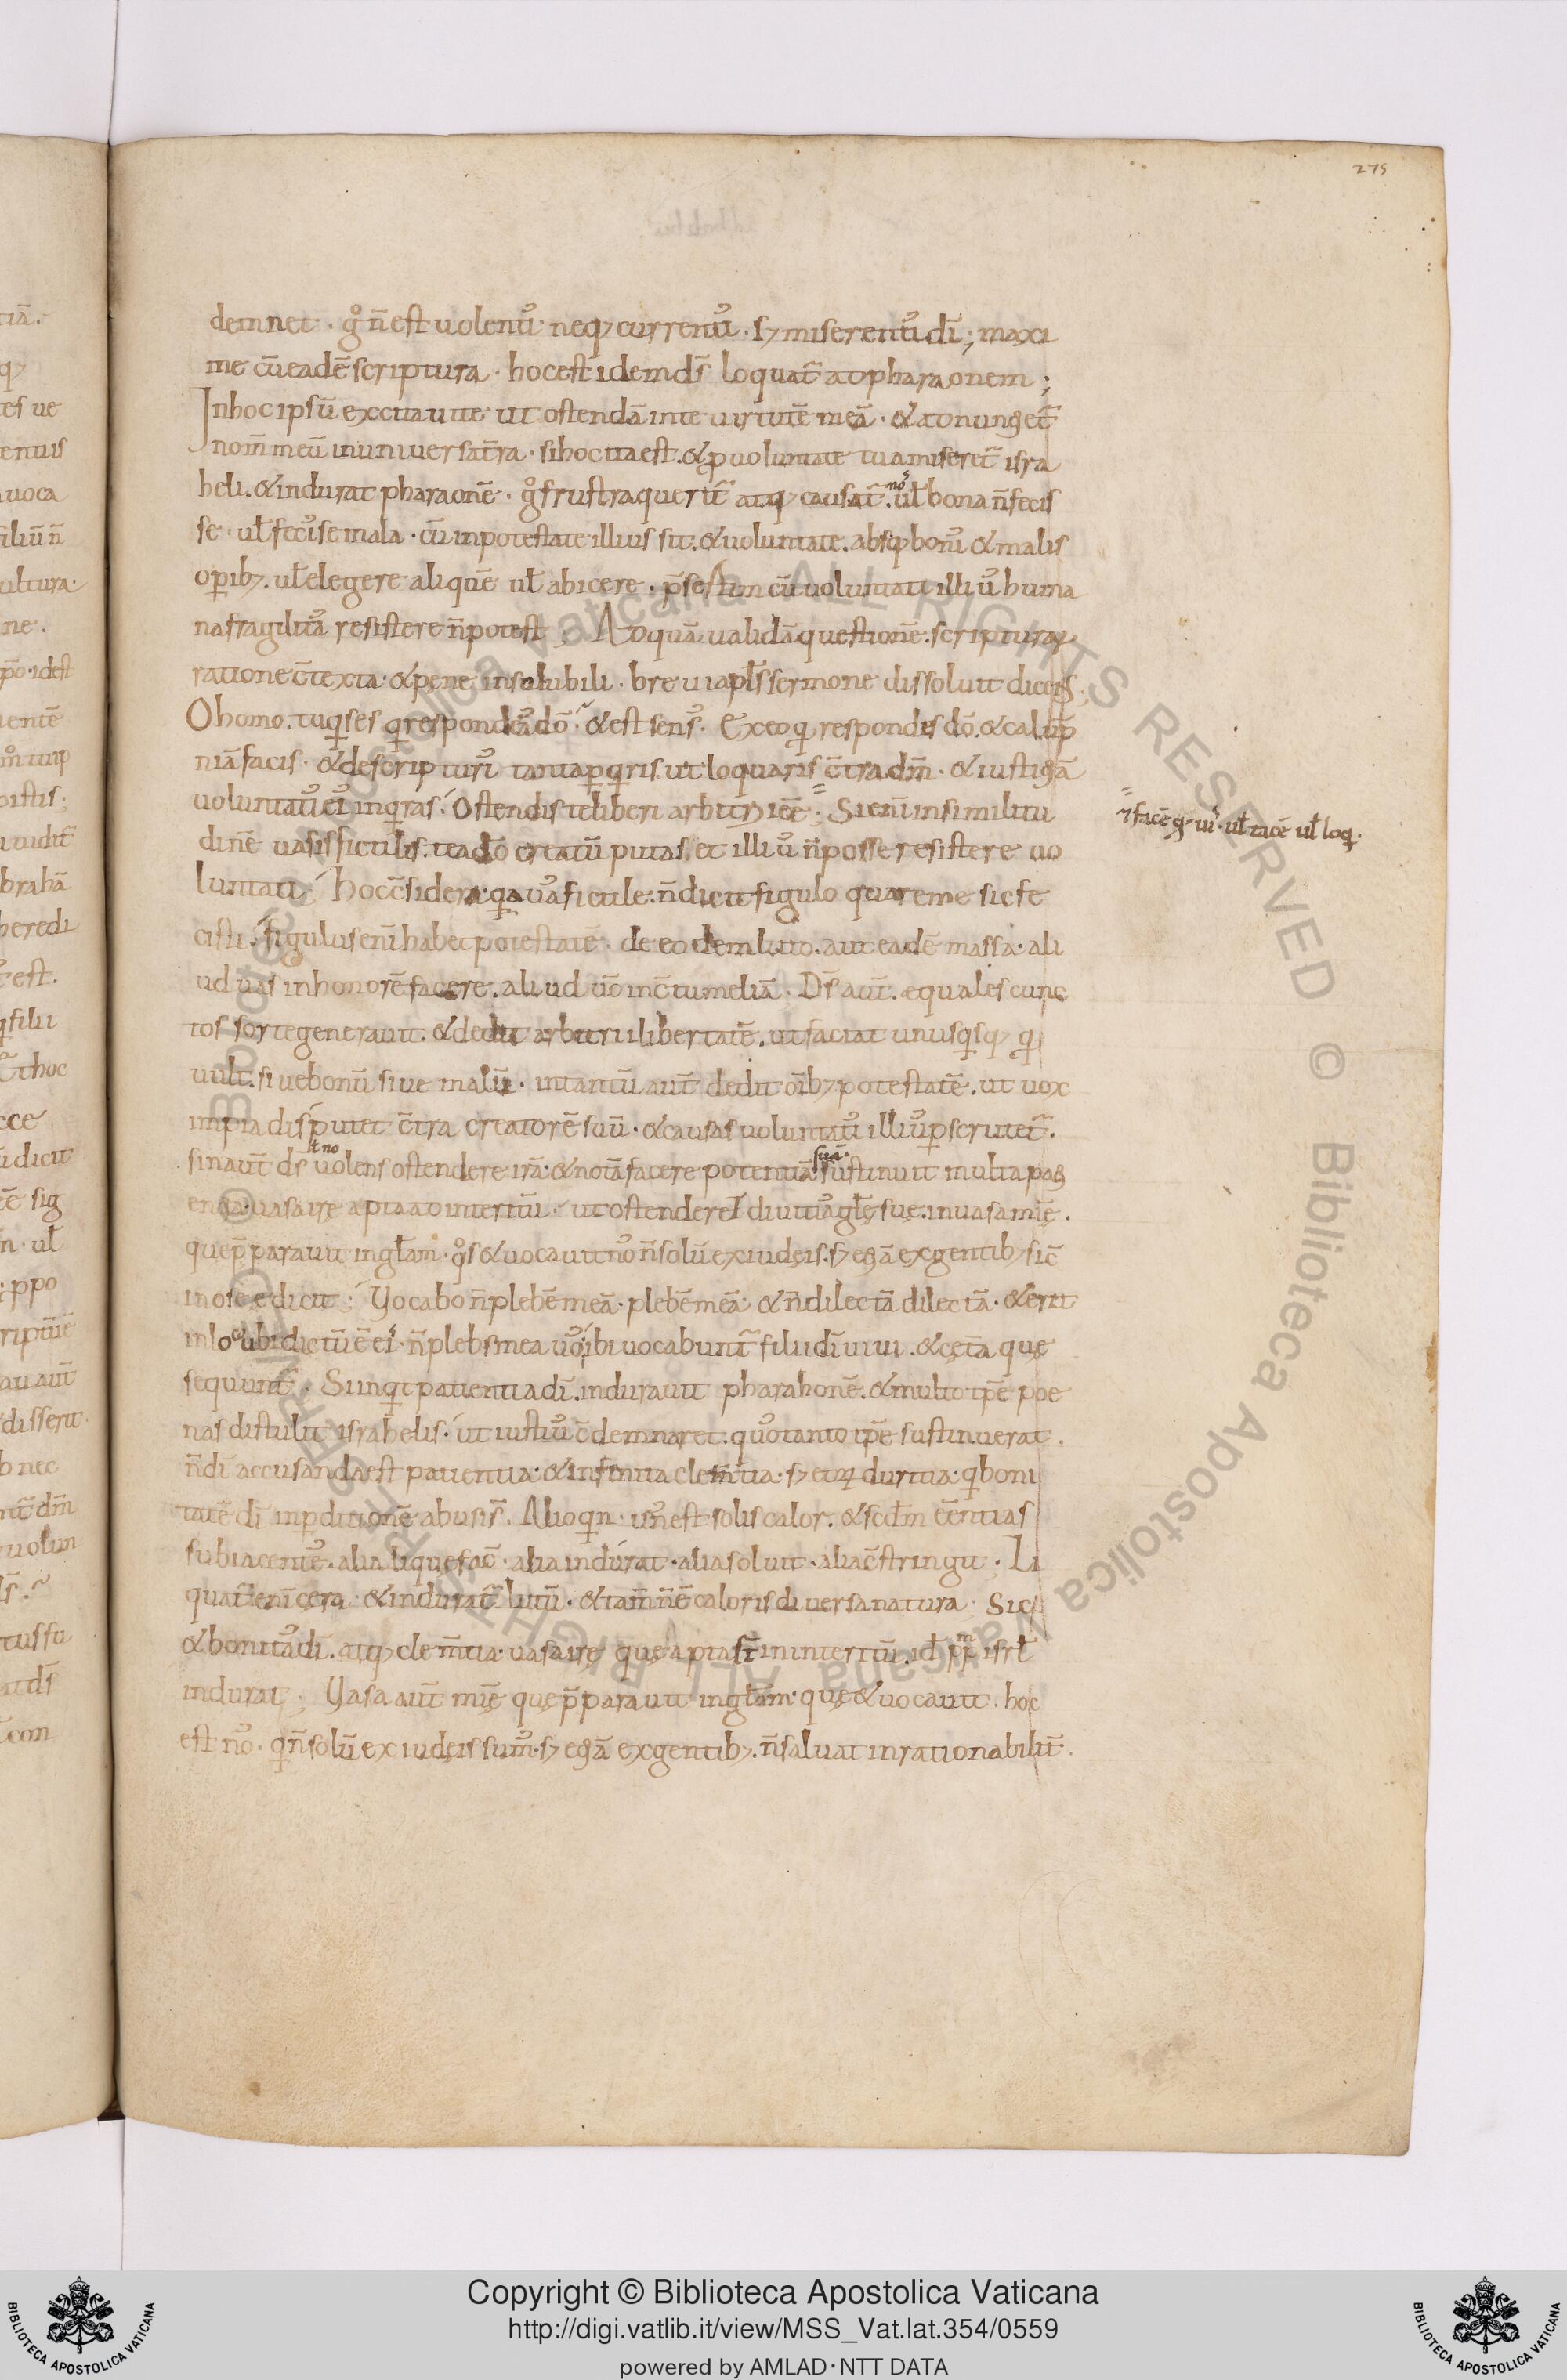 275
demnet · g° n̄ est uolentis neq; currentis · s; miserentis dī ; maxi
me cū eadē scriptura · hoc est idem dS̄ loquat̄ ad pharaonem ;
In hoc ipsū excitaui te ut ostendā in te uirtutē meā · & adnuntiet̄
nom̄ meū in uniuersa t̄ra · si hoc ita est · & p uoluntate sua miseret̄ isra
heli · & indurat pharaonē · g° frustra querit̄ atq; causat̄ nos · ul̄ bona n̄ fecis
se · ul̄ fecisse mala · cū in potestate illius sit · & uoluntate · absq; bonis & malis
opib; · ul̄ elegere aliquē ul̄ abicere · p̄sertim cū uoluntati illius huma
na fragilitas resistere n̄ potest ; Ad quā ualidā questionē · scripturaꝝ
ratione c̄texta · & pene insolubili · breui apl̄s sermone dissoluit dicens ;
O homo · tu qis es qi respondeas dō · & est sensus · Ex eo qi respondes dō · & calūp
niā facis · & de scripturis tanta pqiris · ut loquaris c̄tra dm̄ · & iustitiā
uoluntatis eius inqiras · Ostendis te liberi arbitrii ēe · Si enī in similitu
dinē uasis fictilis · te a dō creatū putas · et illius n̄ posse resistere uo
luntati · Hoc c̄sidera · qia uas fictile · n̄ dicit figulo quare me sic fe
cisti · figulus enī habet potestatē · de eodem luto · aut eadē massa · ali
ud uas in honorē facere · aliud ū in c̄tumeliā · Ds̄ aut̄ · aequales cunc
tos sorte generauit · & dedit arbitrii libertatē · ut faciat unusqisq; qi
uult · siue bonū siue malū · in tantū aut̄ dedit oīb; potestatē · ut uox
impia disputet c̄tra creatorē suū · & causas uoluntatis illius pscrutet̄ ·
sin aut̄ ds̄ uolens ostendere irā · & notā facere potentiā suā · sustinuit in multa pati
entia · uasa irę apta ad interitū · ut ostenderet diuitias gl̄ę suę · in uasa mīę ·
quę p̄parauit in gl̄am · q°s & uocauit nos n̄ solū ex iudęis · s; etiā ex gentib; sic̄
in oseę dicit ; Vocabo n̄ plebē meā · plebē meā · & n̄ dilectā dilectā · & erit
in loco ubi dictū ē eis · n̄ plebs mea uos · ibi uocabunt̄ filii dī uiui · & cęt̄a quę
sequunt̄ · Si inqit patientia dī · indurauit pharahonē · & multo tp̄e poe
nas distulit israhelis · ut iustius c̄demnaret · quos tanto tp̄e sustinuerat ·
n̄ dī accusanda est patientia · & infinita clem̄tia · s; eoꝝ duritia · qi boni
tatē dī in pditionē abusi s̄ · Alioqin · unus est solis calor · & scd̄m eēntias
subiacentes · alia liquefac̄ · alia indurat · alia soluit · alia c̄stringit · Li
quat̄ enī cęra · & indurat̄ lutū · & tam̄ n̄ ē caloris diuersa natura · Sic
& bonitas dī · atq; clem̄tia · uasa irę quę apta s̄t in interitū · id̄ ppl̄m isrl̄
indurat · Vasa aut̄ mīę quę p̄parauit in gl̄am · quę & uocauit · hoc
est nos · qi n̄ solū ex iudęis sumus · s; etiā ex gentib; · n̄ saluat inrationabilit̄ ·
Copyright © Biblioteca Apostolica Vaticana
http://digi.vatlib.it/view/MSS_Vat.lat.354/0559
powered by AMLAD·NTT DATA